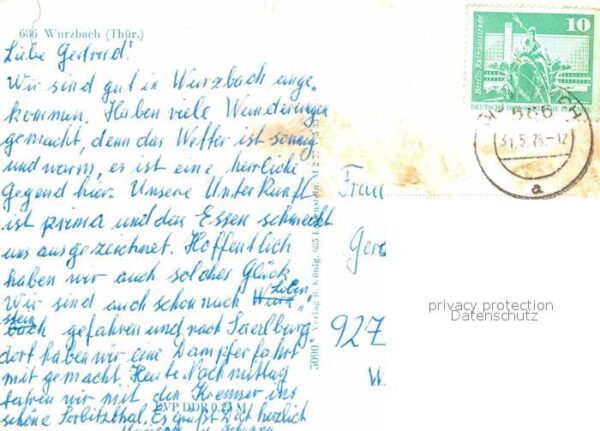 686 Wurzbach (Thür.)
Liebe Gertrud!
Wir sind gut in Wurzbach ange„
kommen. Haben viele Wanderungen
gemacht, denn das Wetter ist sonnig
und warm, es ist eine herrliche
Gegend hier. Unsere Unterkunft
ist prima und das Essen schmeckt
uns ausgezeichnet. Hoffentlich
haben wir auch solches Glück
Wir sind auch schon nach Loben„
stein gefahren und nach Saalburg
dort haben wir eine Dampferfahrt
mit gemacht. Heute Nachmittag
fahren wir mit den Kremser ins
schöne Sorbitzthal. Es grüßt Dich herzlich
EVP DDR 0,25 M
5090 Verlag R. König, 685 Lobenstein
10
Berlin, Rathausstraße
DEUTSCHE DEMOKRATISCHE
686
31.5.76.-12
a
Frau
927
privacy protection
Datenschutz